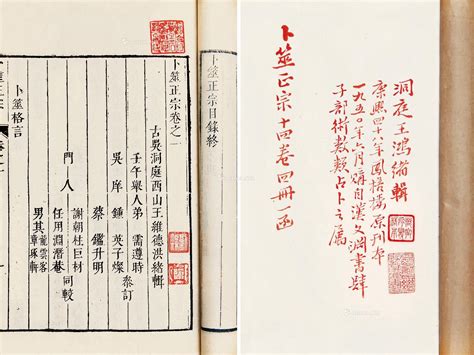 卜筮正宗十四卷四冊一函
洞庭王鴻緒輯
康熙四十八年鳳梧樓原刊本
一九五〇年六月購自漢文淵書肆
子部術數類占卜之屬
卜筮正宗目錄終
卜筮正宗卷之一
古吳洞庭西山王維德洪緒輯
壬午舉人弟 需遵時
吳庠 鍾英子燦 泰訂
蔡鑑升明
門人
謝朝柱巨材
任用淵潛菴 同較
男其龍雲客
章琢輯
卜筮格言